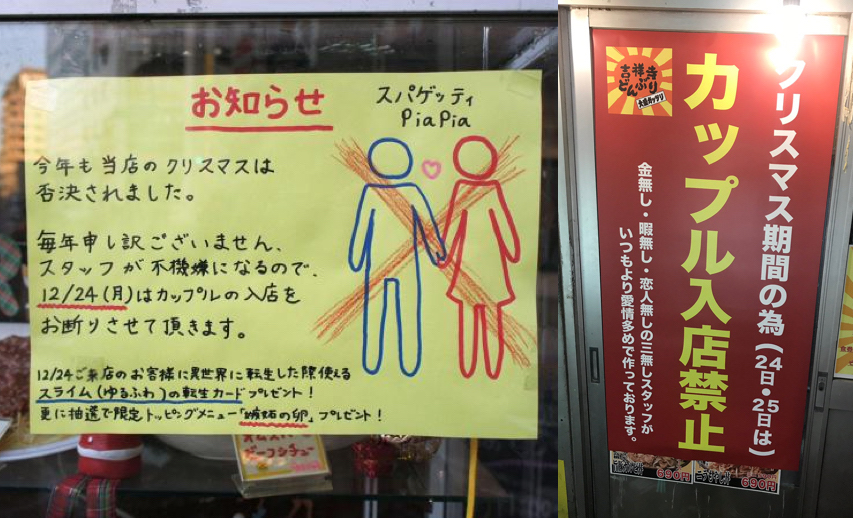 お知らせ
スパゲッティ
PiaPia
今年も当店のクリスマスは
否決されました。
毎年申し訳ございません、
スタッフが不機嫌になるので、
12/24(月)はカップルの入店を
お断りさせて頂きます。
12/24ご来店のお客様に異世界に転生した際使える
スライム(ゆるふわ)の転生カードプレゼント!
更に抽選で限定トッピングメニュー「嫉妬の卵」プレゼント!
ビーフシチュー
吉祥寺
どんぶり
大盛ガッツリ
クリスマス期間の為(24日・25日は)
カップル入店禁止
金無し・暇無し・恋人無しの三無しスタッフが
いつもより愛情多めで作っております。
690円
690円